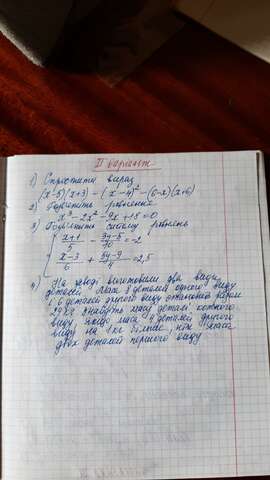 II варіант
1) Спростити вираз
(x-5)(x+3) - (x-4)² - (6-x)(x+6)
2) Розв'яжіть рівняння
x³ - 2x² - 9x + 18 = 0
3) Розв'яжіть систему рівнянь
(x+1)/5 - (3y-5)/10 = -2
(x-3)/6 + (5y-9)/4 = 2,5
4) На заводі виготовили два види
деталей. Маса 3 деталей одного виду
і 6 деталей другого виду становить разом
29 кг. Знайдіть масу деталі кожного
виду, якщо маса 4 деталей другого
виду на 1 кг більше, ніж маса
двох деталей першого виду